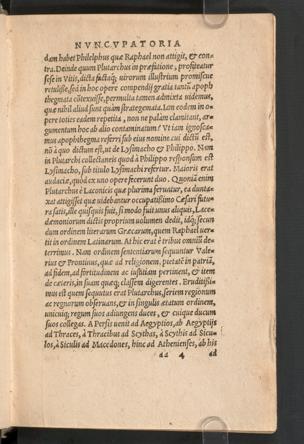 NVNCVPATORIA
dam habet Philelphus quæ Raphael non attigit, & con-
tra. Deinde quum Plutarchus in præfatione, profiteatur
sese in Vitis, dicta factaq; uirorum illustrium promiscue
retulisse, sed in hoc opere compendij gratia tantũ apoph
thegmata cõtexuisse, permulta tamen admixta uidemus,
quæ nihil aliud sunt quàm strategemata. Iam eodem in o-
pere toties eadem repetita, nonne palàm clamitant, ar-
gumentum hoc ab alio contaminatum? Vt iam ignosca-
mus apophthegma referri sub eius nomine cui dictũ est,
nõ à quo dictum est, ut de Lysimacho & Philippo. Nam
in Plutarchi collectaneis quod à Philippo responsum est
Lysimacho, sub titulo Lysimachi refertur. Maioris erat
audaciæ, quòd ex uno opere fecerunt duo. Quoniã enim
Plutarchus è Laconicis quæ plurima feruntur, ea dunta-
xat attigisset quæ uidebantur occupatissimo Cæsari futu-
ra satis, ille quisquis fuit, si modo fuit unus aliquis, Lace-
dæmoniorum dictis proprium uolumen dedit, idq; secun
dum ordinem literarum Græcarum, quem Raphael uer-
tit in ordinem Latinarum. At hic erat è tribus omniũ de-
terrimus. Nam ordinem sententiarum sequuntur Vale-
rius & Frontinus, quæ ad religionem, pietatẽ in patriã,
ad fidem, ad fortitudinem ac iustitiam pertinent, & item
de cæteris, in suam quæq; classem digerentes. Eruditissi-
mus est quem sequutus erat Plutarchus, seriem regionum
ac regnorum obseruans, & in singulis ætatum ordinem,
unicuiq; regum suos adiungens duces, & cuique ducum
suos collegas. A Persis uenit ad Aegyptios, ab Aegyptijs
ad Thraces, à Thracibus ad Scythas, à Scythis ad Sicu-
los, à Siculis ad Macedones, hinc ad Athenienses, ab his
aa 4 ad